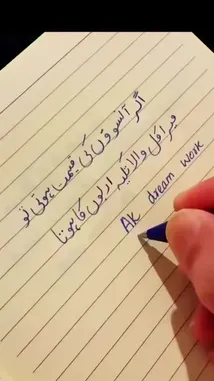 اگر آنسوؤں کی قیمت ہوتی تو
میرا کل والا تکیہ اربوں کا ہوتا
AK dream work